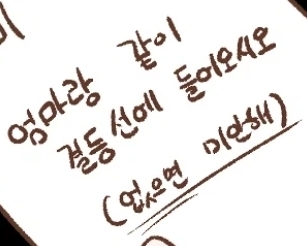 엄마랑 같이
결등선에 들어오시오
(없으면 미안해)